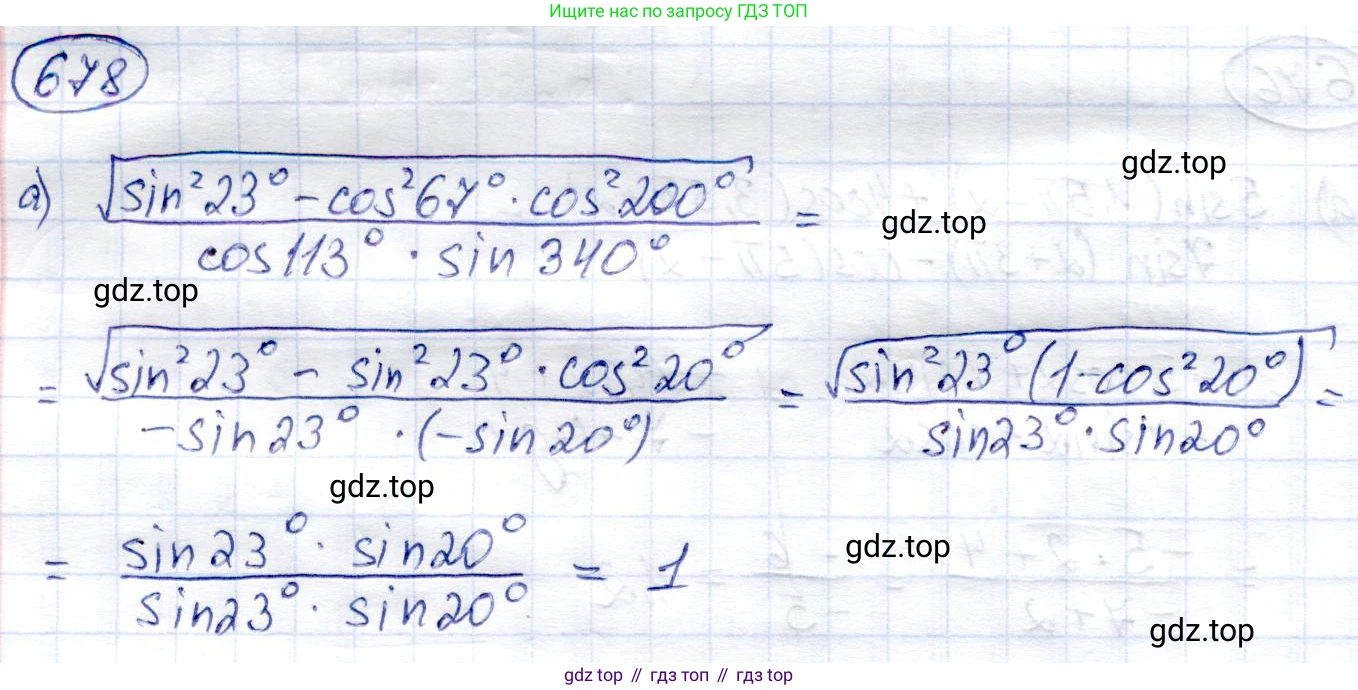 Ищите нас по запросу ГДЗ ТОП
678
а) √(sin²23° - cos²67° · cos²200°) / (cos113° · sin340°) =
gdz.top
gdz.top
gdz.top
= √(sin²23° - sin²23° · cos²20°) / (-sin23° · (-sin20°)) = √(sin²23°(1-cos²20°)) / (sin23° · sin20°) =
gdz.top
= (sin23° · sin20°) / (sin23° · sin20°) = 1
gdz.top
gdz.top
gdz top // гдз топ // gdz top